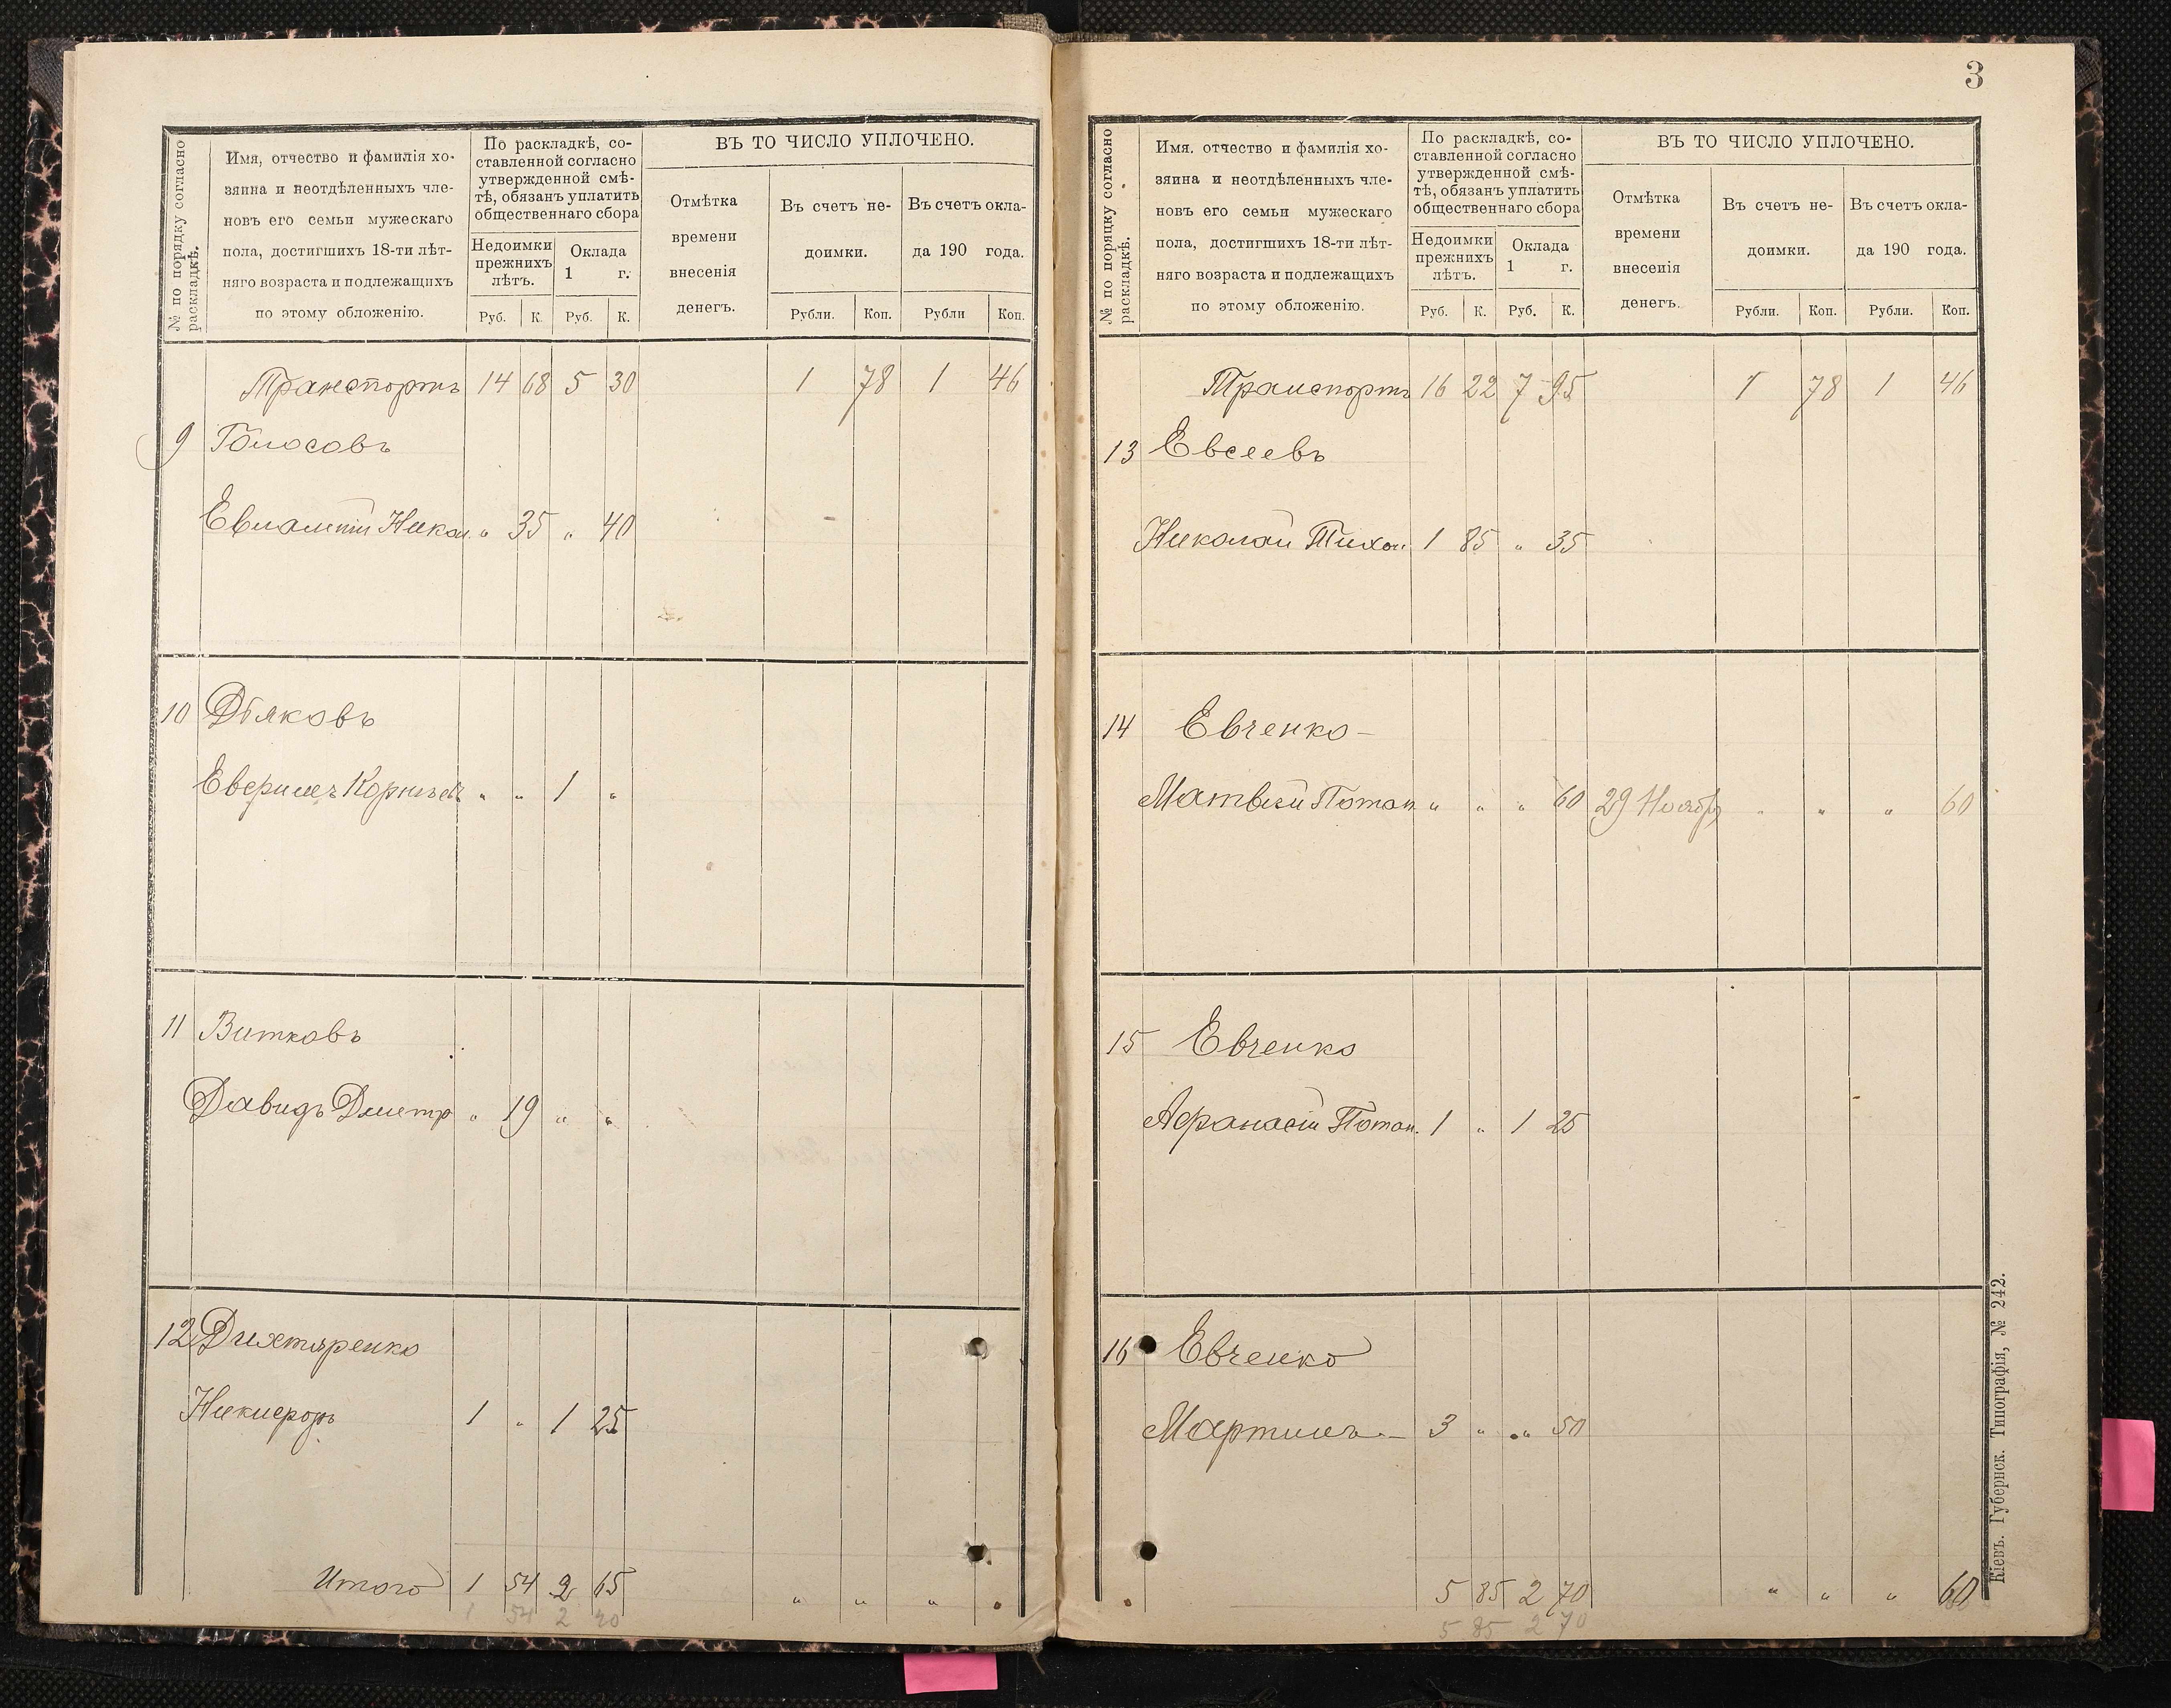 № по порядку согласно раскладкѣ.
Имя, отчество и фамилія хо-
зяина и неотдѣленныхъ чле-
новъ его семьи мужескаго
пола, достигшихъ 18-ти лѣт-
няго возраста и подлежащихъ
по этому обложенію.
По раскладкѣ, со-
ставленной согласно
утвержденной смѣ-
тѣ, обязанъ уплатить
общественнаго сбора
Недоимки
прежнихъ
лѣтъ.
Оклада
1 г.
Руб. К. Руб. К.
ВЪ ТО ЧИСЛО УПЛОЧЕНО.
Отмѣтка
времени
внесенія
денегъ.
Въ счетъ не-
доимки.
Въ счетъ окла-
да 190 года.
Рубли. Коп. Рубли Коп.
Транспортъ 14 68 5 30 1 78 1 46
9 Голосовъ
35 „ 40
10 Дьяковъ
„ „ 1 „
11 Витковъ
Давидъ Дмитр „ 19 „ „
12 Дихтяренко
Никифоръ 1 „ 1 25
Итого 1 54 2 65 „ „ „ „
1 54 2 20
3
№ по порядку согласно раскладкѣ.
Имя. отчество и фамилія хо-
зяина и неотдѣленныхъ чле-
новъ его семьи мужескаго
пола, достигшихъ 18-ти лѣт-
няго возраста и подлежащихъ
по этому обложенію.
По раскладкѣ, со-
ставленной согласно
утвержденной смѣ-
тѣ, обязанъ уплатить
общественнаго сбора
Недоимки
прежнихъ
лѣтъ.
Оклада
1 г.
Руб. К. Руб. К.
ВЪ ТО ЧИСЛО УПЛОЧЕНО.
Отмѣтка
времени
внесенія
денегъ.
Въ счетъ не-
доимки.
Въ счетъ окла-
да 190 года.
Рубли. Коп. Рубли. Коп.
Транспортъ 16 22 7 95 1 78 1 46
13 Евсеевъ
Николай Тихон. 1 85 „ 35
14 Евченко
Матвей Потап „ „ „ 60 29 Ноября „ „ „ 60
15 Евченко
Афанасій Потап. 1 „ 1 25
16 Евченко
Мартинъ 3 „ „ 50
5 85 2 70 „ „ „ 60
5 85 2 70
Кіевъ. Губернск. Типографія, № 242.